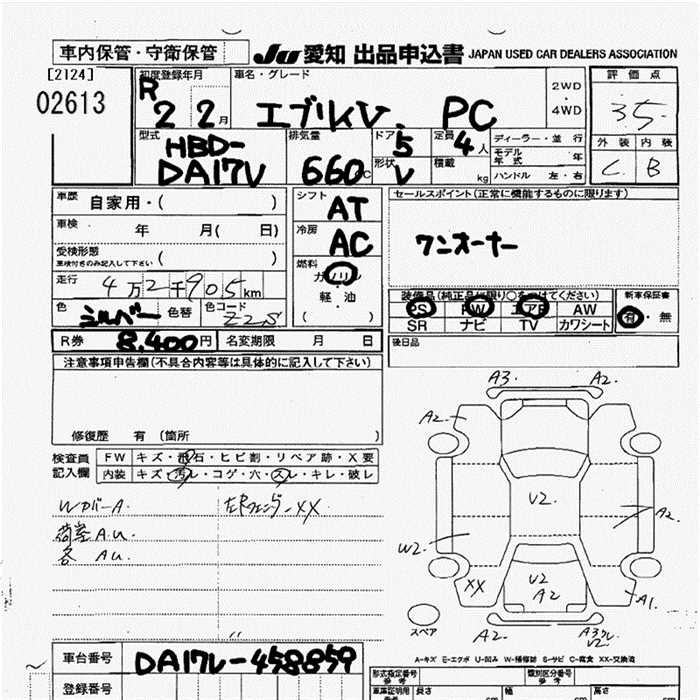 車内保管・守衛保管 JU 愛知 出品申込書 JAPAN USED CAR DEALERS ASSOCIATION
[2124]
02613
初度登録年月 車名・グレード 評価点
R 2 2月 エブリィV. PC 2WD ・ 4WD 3.5
型式 排気量 ドア 定員 ディーラー・並行 外装 内装
HBD- DA17V 660CC 5 4人 モデル年式 年 C B
形状 V 積載 kg ハンドル 左・右
車歴 自家用・( )
車検 年 月( 日)
受検形態 ( )
車検付きのみ記入して下さい
走行 4万2千905km
色 シルバー 色替 色コード Z2S
シフト AT
冷房 AC
燃料 ガソリン・軽・油
( )
セールスポイント(正常に機能するものに限ります)
ワンオーナー
装備品(純正品に限り○をつけてください) 新車保証書
PS PW エアB AW 有・無
SR ナビ TV カワシート
R券 8,400円 名変期限 月 日 後日品
注意事項申告欄(不具合内容等は具体的に記入して下さい)
修復歴 有(箇所 )
検査員記入欄 FW キズ・飛石・ヒビ割・リペア跡・X要
内装 キズ・汚レ・コゲ・穴・スレ・キレ・破レ
WカバーA. 左Rフェンダ-XX
荷室A.U.
各 AU.
A3. A2.
A2.
U2.
A2.
W2.
XX U2 A2
A1.
スペア A2. A3クレ U2.
A-キズ E-エクボ U-凹み W-補修跡 S-サビ C-腐食 XX-交換済
車台番号 DA17V-458859
登録番号
形式指定番号 類別区分番号
車庫証明用参考 長さ cm 幅 cm 高さ cm